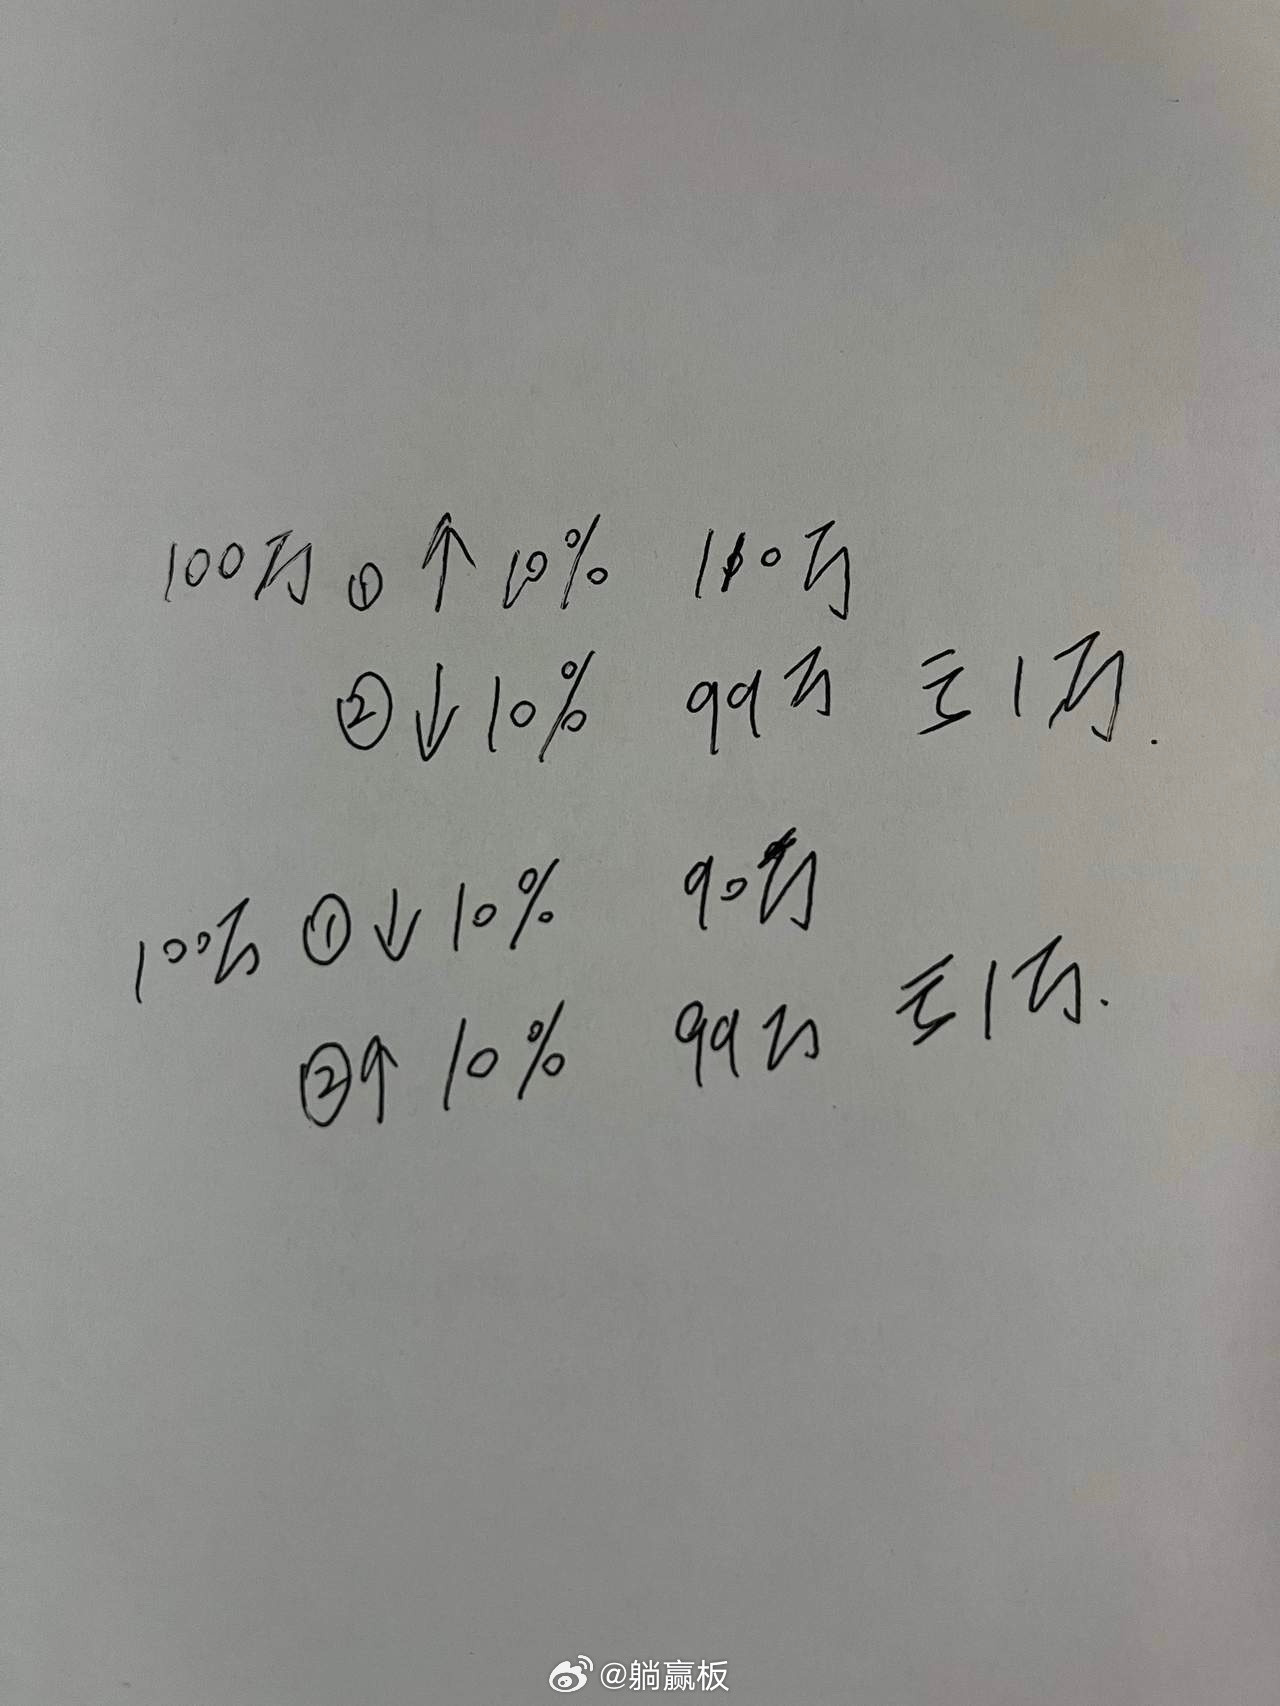 100万 ① ↑ 10% 110万
② ↓ 10% 99万 亏1万.
100万 ① ↓ 10% 90万
② ↑ 10% 99万 亏1万.
@躺赢板